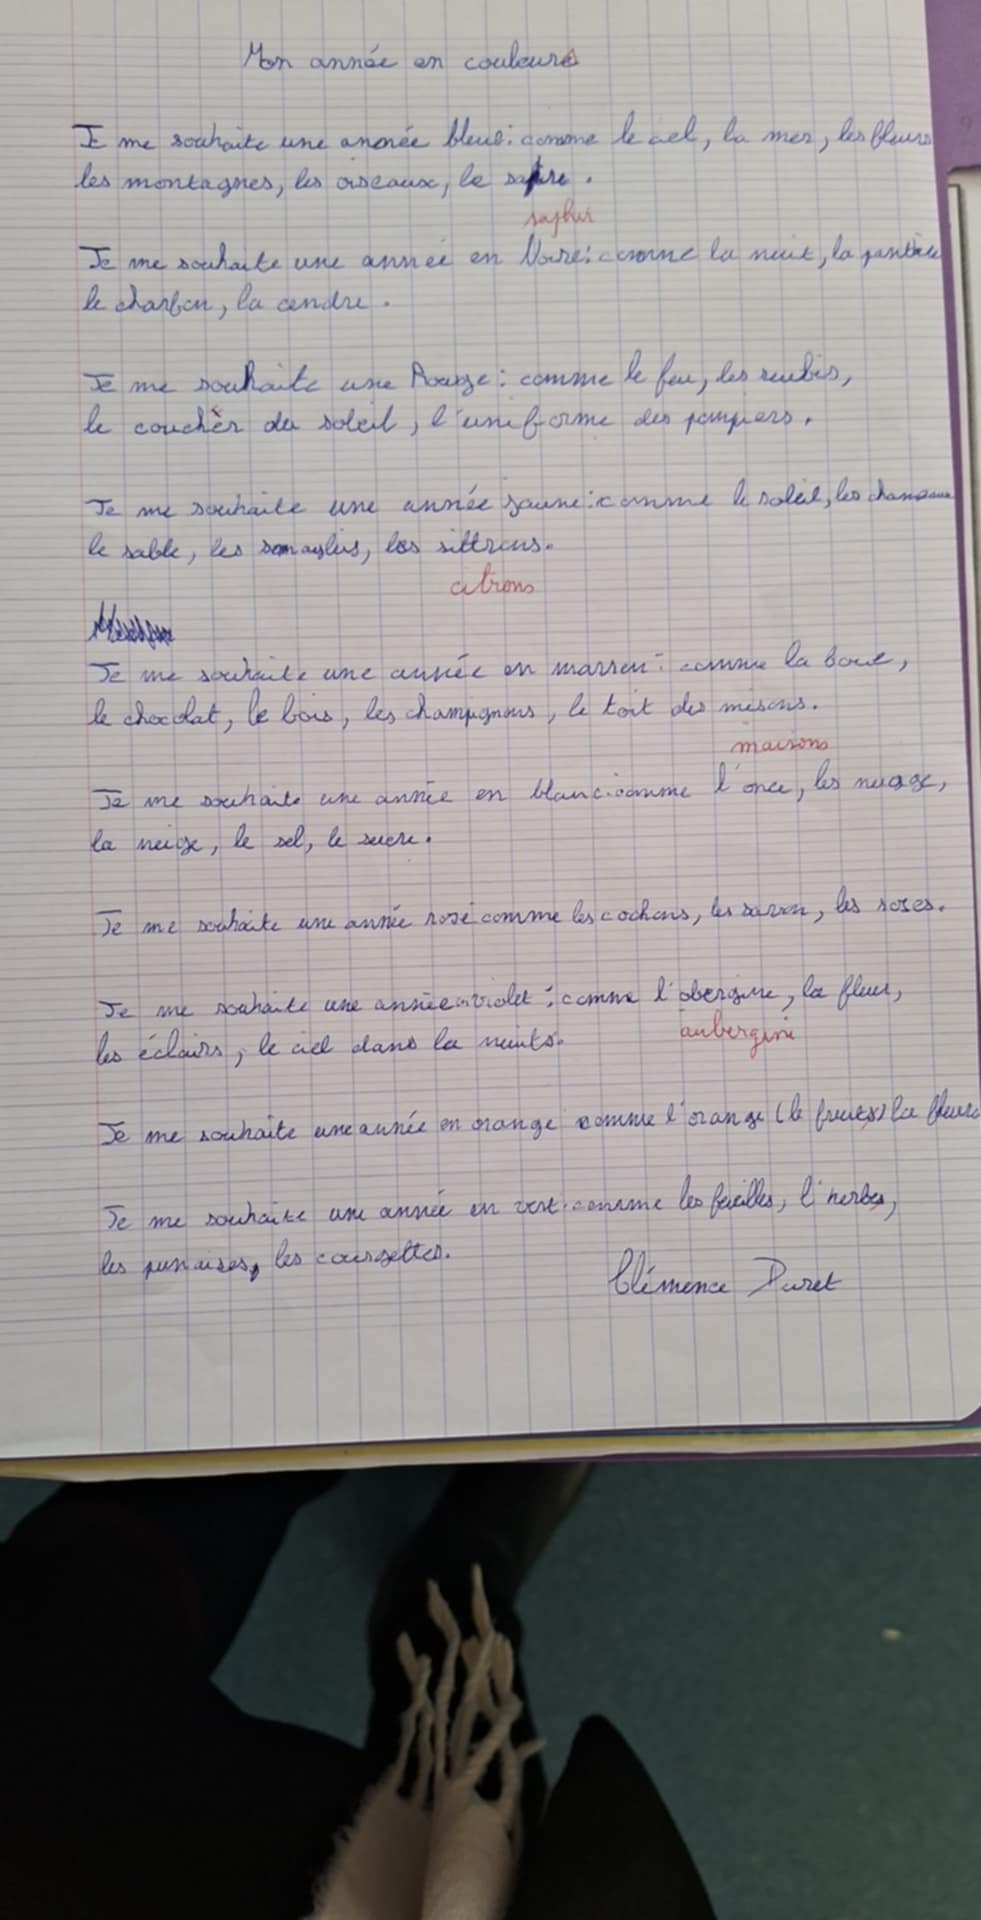 Mon année en couleurs
Je me souhaite une année bleue: comme le ciel, la mer, les fleurs
les montagnes, les oiseaux, le
saphir
Je me souhaite une année en Noire: comme la nuit, la panthère
le charbon, la cendre.
Je me souhaite une Rouge: comme le feu, les rubis,
le couchèr du soleil, l'uniforme des pompiers.
Je me souhaite une année jaune: comme le soleil, les chameaux
le sable, les, les sittrons.
citrons
Je me souhaite une année en marron: comme la boue,
le chocolat, le bois, les champignons, le toit des misons.
maisons
Je me souhaite une année en blanc: comme l'once, les nuage,
la neige, le sel, le sucre.
Je me souhaite une année rose comme les cochons, les savon, les roses.
Je me souhaite une année en violet: comme l'obergine, la fleur,
aubergine
les éclairs, le ciel dans la nuits.
Je me souhaite une année en orange comme l'orange (le fruits) la fleurs
Je me souhaite une année en vert: comme les feuilles, l'herbes,
les punaises, les coursettes.
Clémence Duret